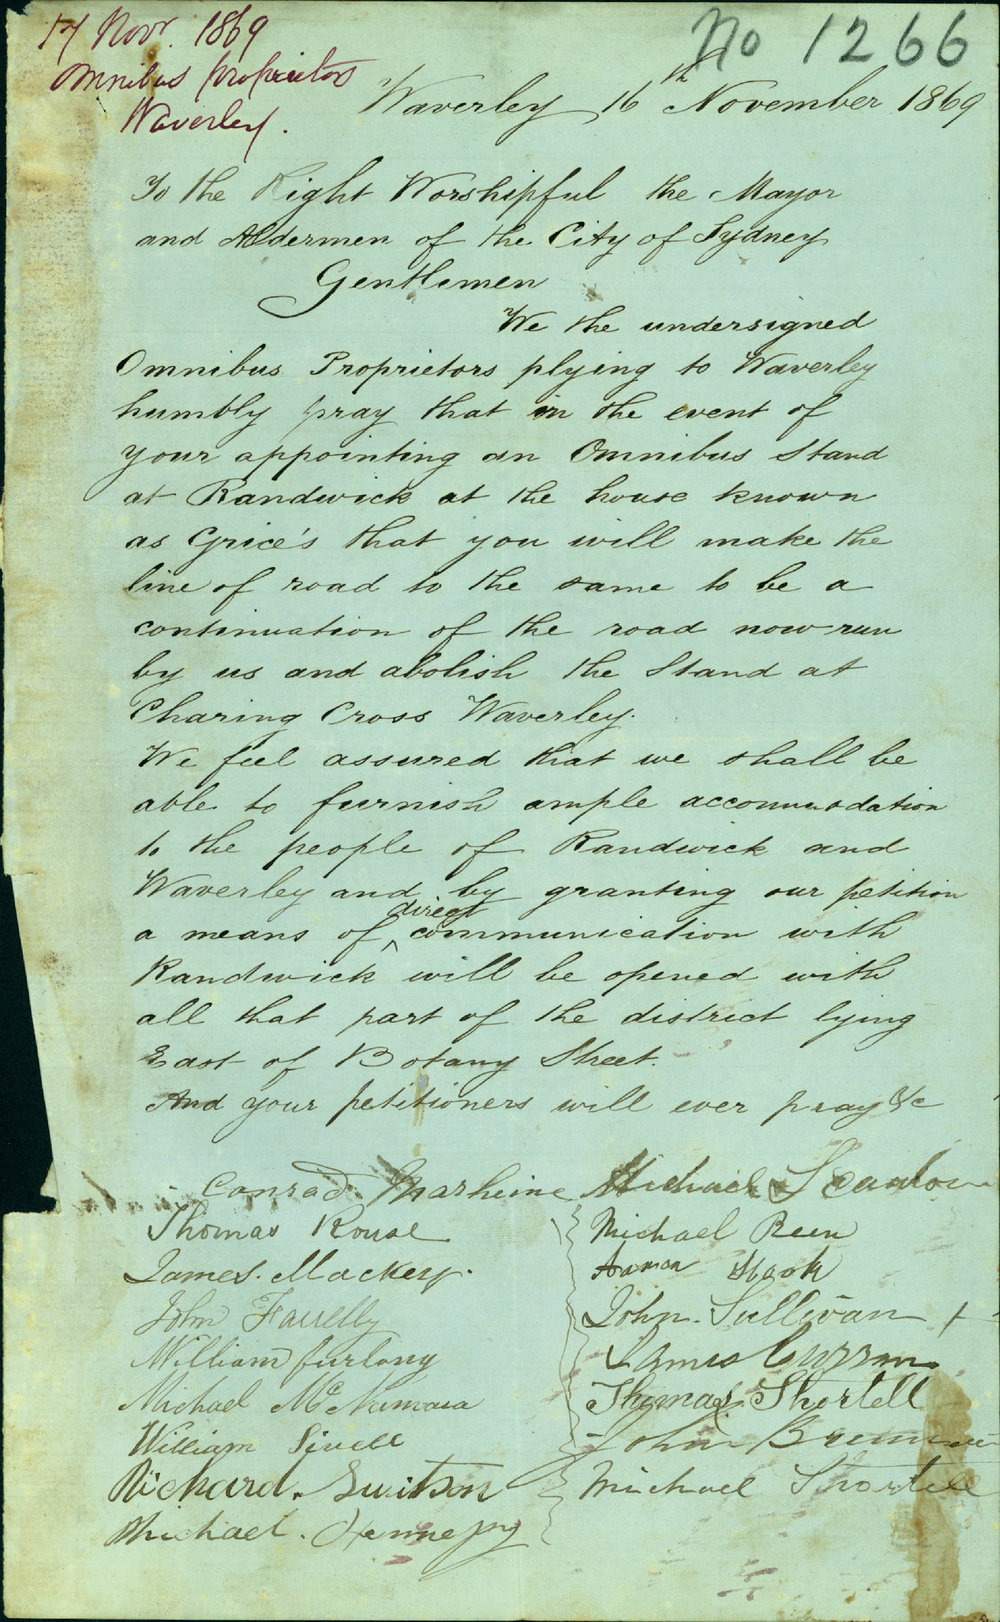 17 Novr. 1869
Omnibus proprietors
Waverley.
No 1266
Waverley 16th November 1869
To the Right Worshipful the Mayor
and Aldermen of the City of Sydney
Gentlemen
We the undersigned
Omnibus Proprietors plying to Waverley
humbly pray that in the event of
your appointing an Omnibus Stand
at Randwick at the house known
as Grice's that you will make the
line of road to the same to be a
continuation of the road now run
by us and abolish the Stand at
Charing Cross Waverley.
We feel assured that we shall be
able to furnish ample accommodation
to the people of Randwick and
Waverley and by granting our petition
a means of direct communication with
Randwick will be opened with
all that part of the district lying
East of Botany Street.
And your petitioners will ever pray &c
Conrad Marheine
Thomas Rouse
James. Mackey.
John Farrelly
William Furlong
Michael McNamara
William
Richard.
Michael.
Michael Scanlon
Michael
John. Sullivan +
James Curran
Thomas Shortell
John Brennan
Michael Shortell